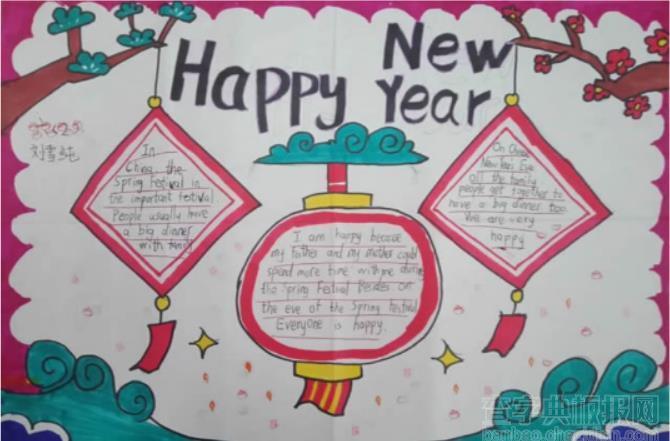 Happy New
Year
刘雪纯
In
China, the
Spring Festival in
the important festival.
People usually have
a big dinner
with family
I am happy because
my father and my mother could
spend more time with me during
the Spring Festival Besides on
the eve of the Spring Festival.
Everyone is happy.
On Chinese
New Year's Eve
all the family
people get together to
have a big dinner too.
We are very
happy